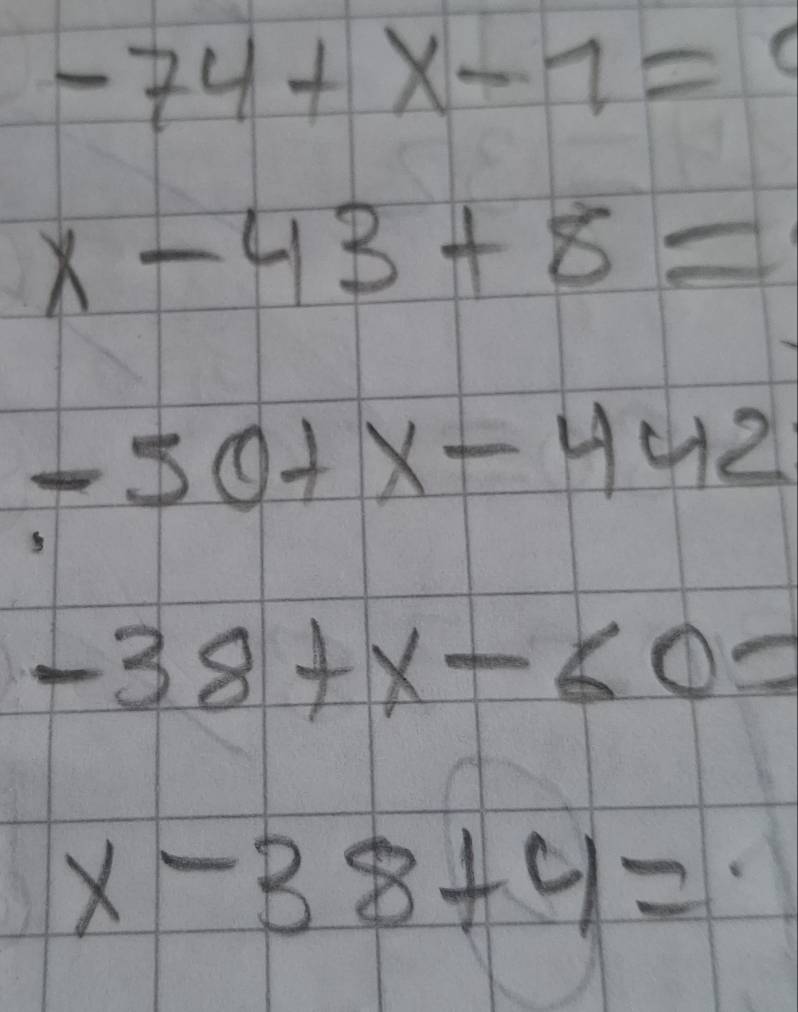 -74+x-1=
x-43+8=
-50+x-442
-38+x-60=
x-38+4=